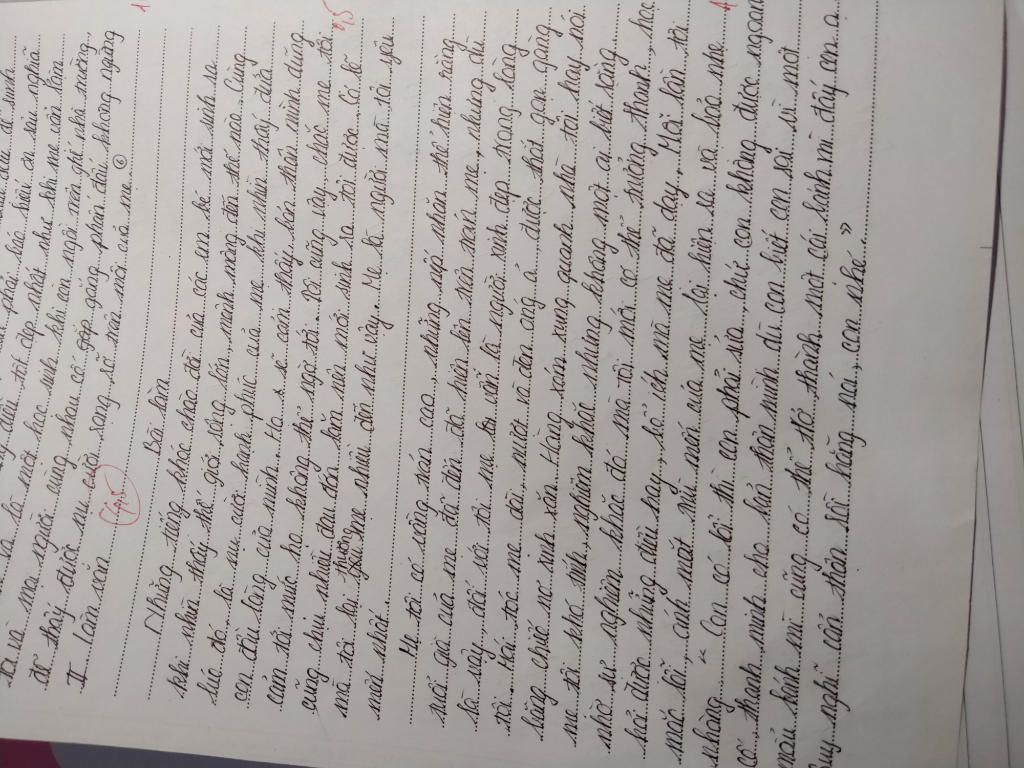 và là một học sinh phải báo hiếu, ơn sâu nghĩa
điều tốt đẹp nhất như khi mẹ vẫn làm
Tôi và mọi người cùng nhau cố gắng phấn đấu không ngừng
để thấy được nụ cười sang sổ trên môi của mẹ.
II Làm văn
4,5
Bài làm
Những tiếng khóc chào đời của các em bé mới sinh ra
khi nhìn thấy thế giới rộng lớn, mênh mông đến thế nào. Cùng
lúc đó, là nụ cười hạnh phúc của mẹ khi nhìn thấy đứa
con đầu lòng của mình. Họ sẽ cảm thấy bản thân mình dũng
cảm tới mức họ không thể ngờ tới. Tôi cũng vậy, chắc mẹ tôi
cũng chịu nhiều đau đớn lắm nên mới sinh ra tôi được. Có lẽ
mà tôi lại thương mẹ nhiều đến như vậy. Mẹ là người mà tôi yêu
mến nhất.
Mẹ tôi có vầng trán cao, những nếp nhăn thể hiện rằng
tuổi già của mẹ đã dần đà hiện lên trên trán mẹ, nhưng dù
là vậy, đối với tôi mẹ ta vẫn là người xinh đẹp trong lòng
tôi. Mái tóc mẹ dài, mượt và đen óng ả được hớt gọn gàng
bằng chiếc nơ xinh xắn. Hàng xóm xung quanh nhà tôi hay nói
mẹ tôi khó tính, nghiêm khắc nhưng không một ai biết rằng
nhờ sự nghiêm khắc đó mà tôi mới có thể trưởng thành, học
hỏi được những điều hay, bổ ích mà mẹ đã dạy. Mỗi lần tôi
mắc lỗi, ánh mắt trìu mến của mẹ lại hiện ra và bảo nhẹ
nhàng " Con có lỗi thì con phải sửa, chứ con không được ngoan
cố, thanh minh cho bản thân mình dù con biết con sai vì một
mầm bánh mì cũng có thể trở thành một cái bánh mì đấy con ạ.
Suy nghĩ cẩn thận rồi hẵng nói, con nhé."